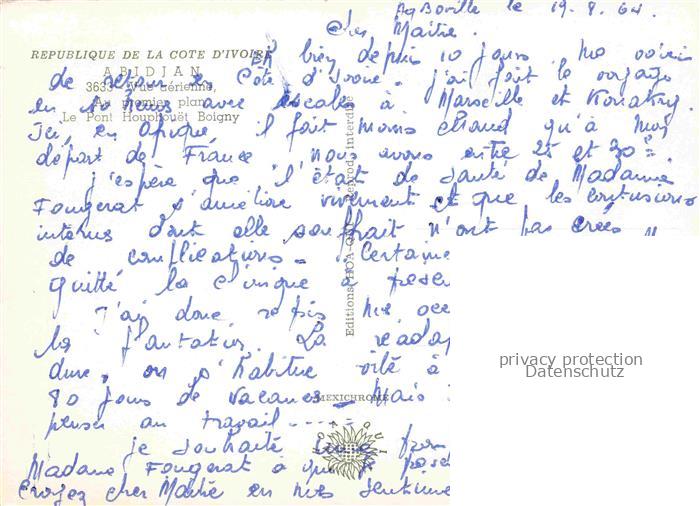 Agboville le 19.8.64.
Cher Maître.
Eh bien depuis 10 jours me voici
de retour en Côte d'Ivoire. j'ai fait le voyage
en 10 heures avec escale à Marseille et Konakry.
Ici, en Afrique il fait moins chaud qu'à mon
départ de France nous avons entre 25 et 30°.
j'espère que l'état de santé de Madame
Fougerat s'améliore vivement et que les contusions
internes dont elle souffrait n'ont pas créés
de complications. Certaine
quitté la clinique à présen
J'ai donc repris mes occ
la plantation. La réadap
dure, on s'habitue vite à
80 jours de vacances _ Mais
penser au travail....
je souhaite
Madame Fougerat à qui je présen
Croyez cher Maître en mes sentime
REPUBLIQUE DE LA COTE D'IVOIRE
ABIDJAN
3633 - Vue aérienne,
Au premier plan
Le Pont Houphouët Boigny
Reprod. interdite
MEXICHROME
privacy protection
Datenschutz